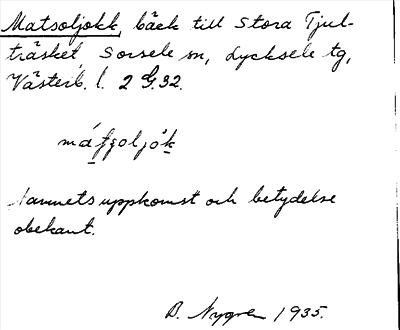 Matsoljokk, bäck till Stora Tjul-
träsket, Sorsele sn, Lycksele tg,
Västerb. l. 2 G. 32.
Namnets uppkomst och betydelse
obekant.
D. Nygren 1935.